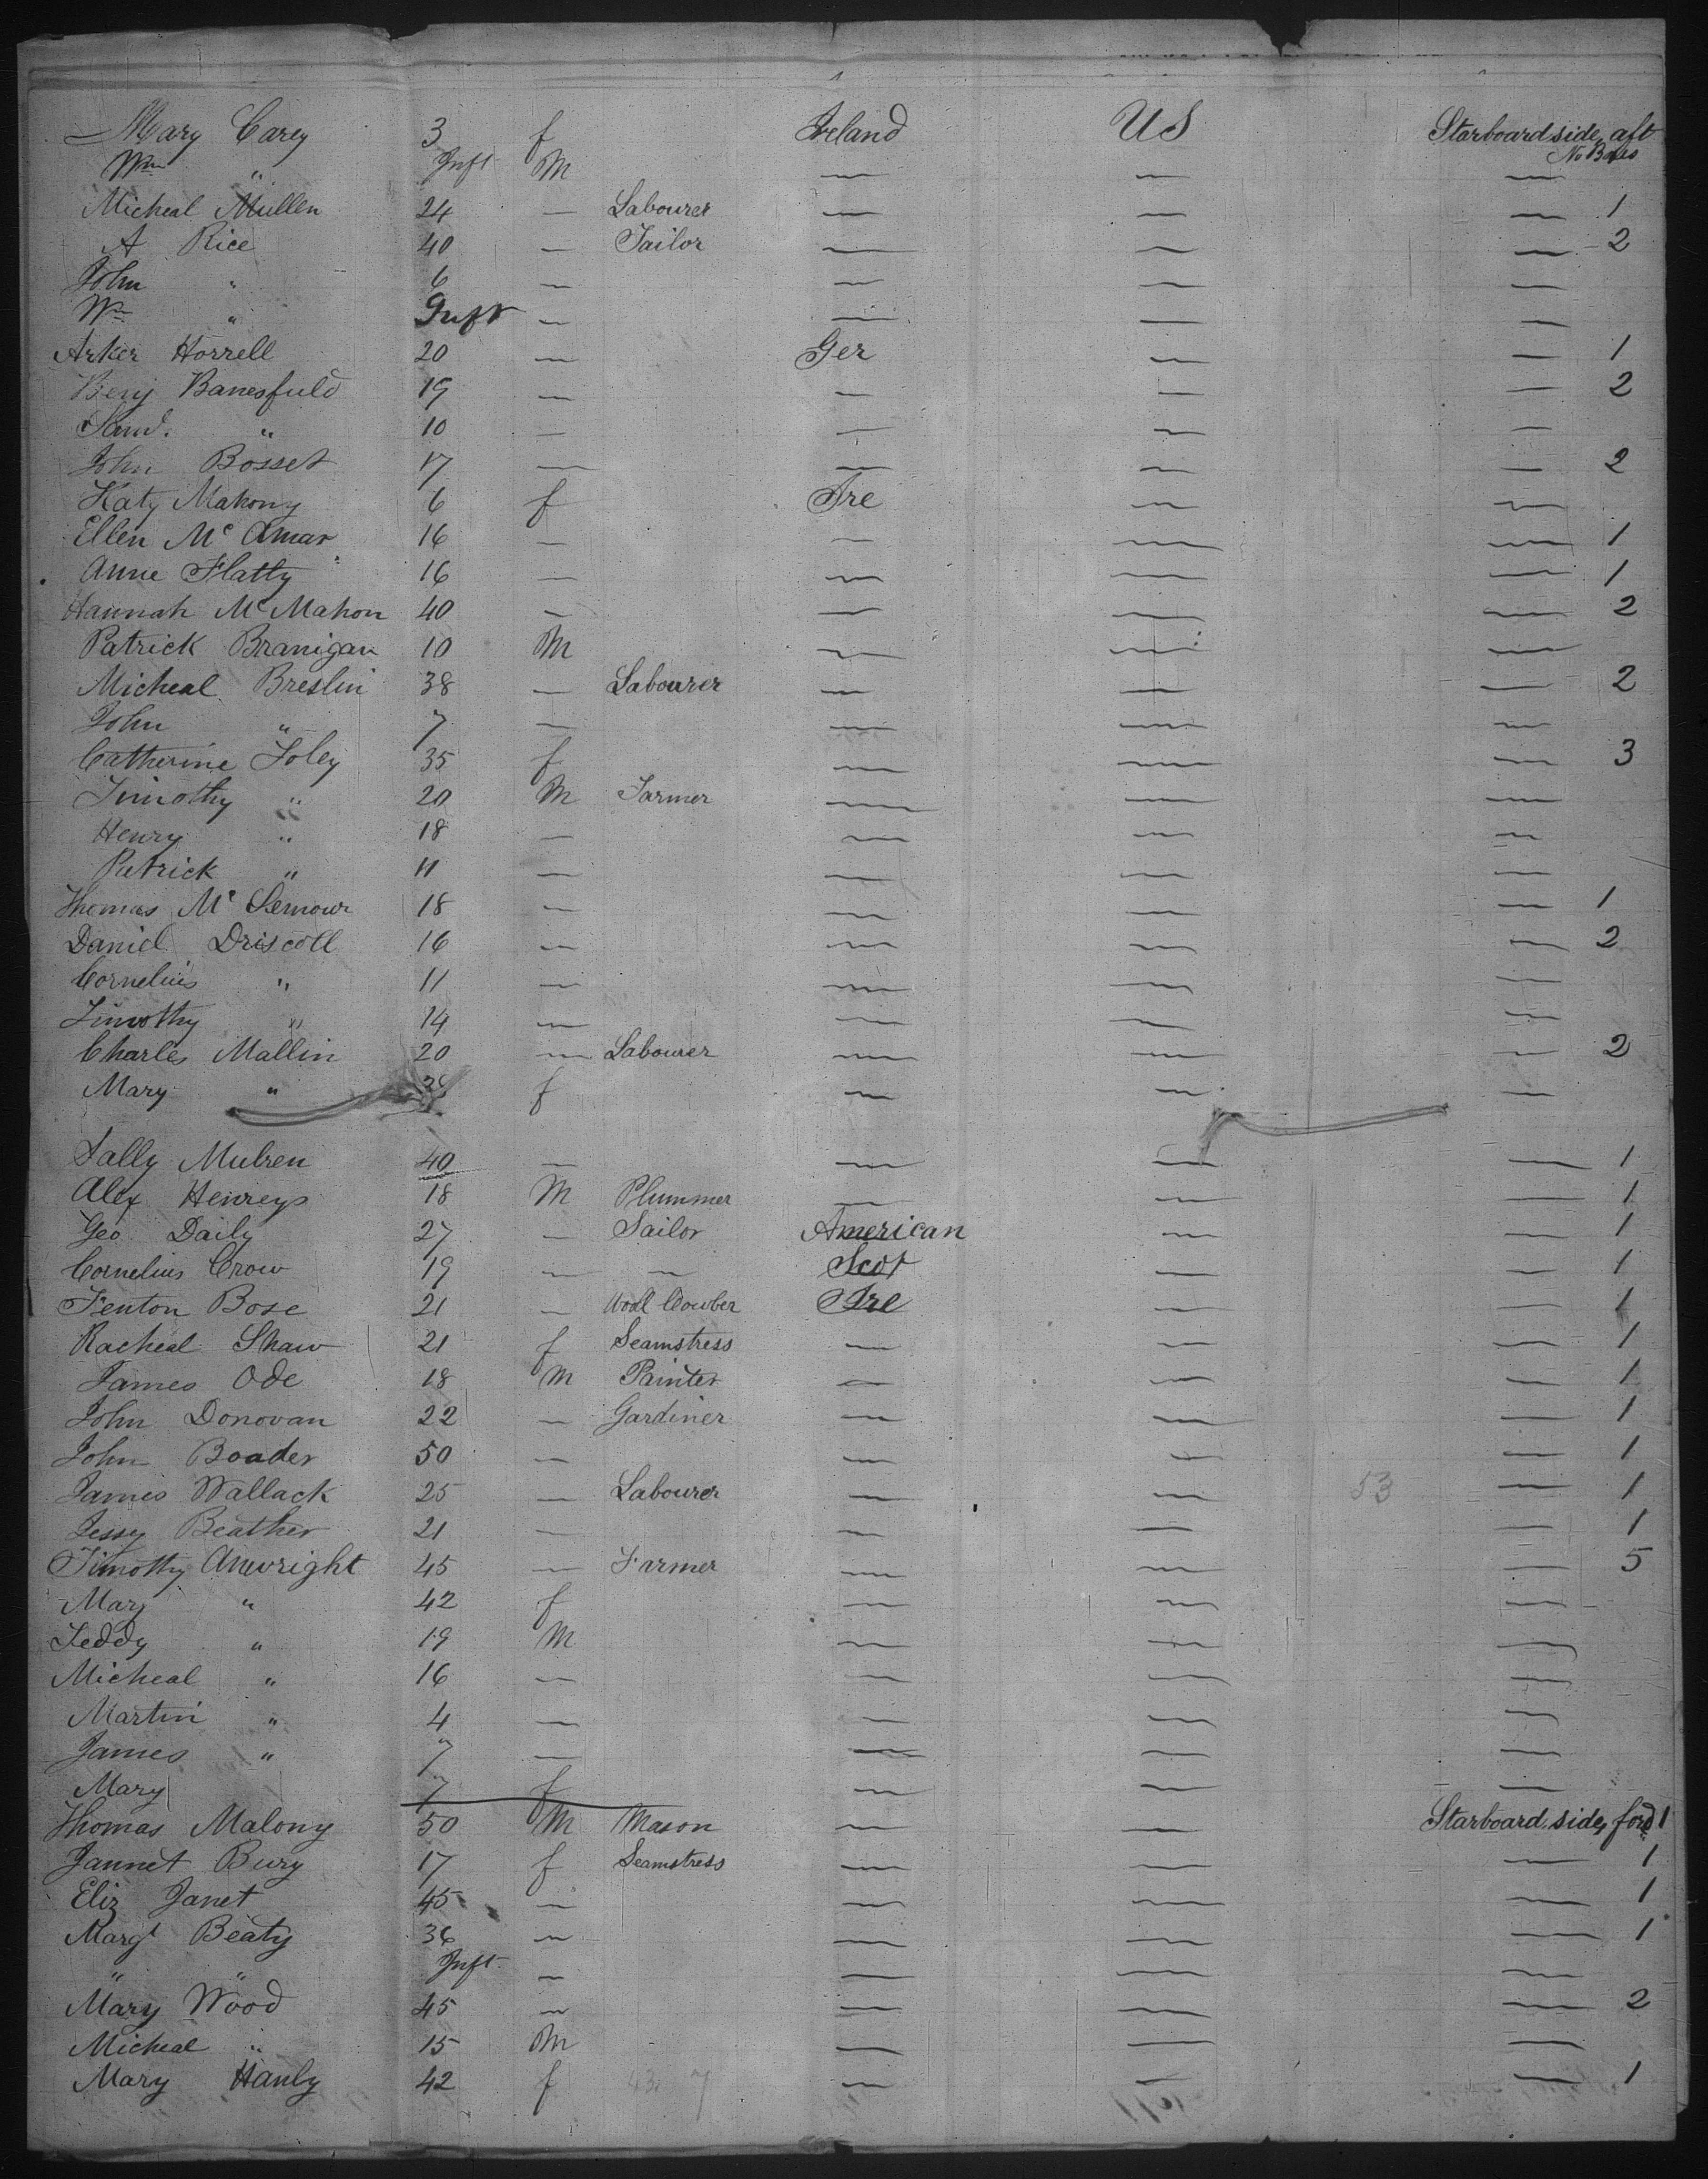 Mary Carey 3 f Ireland US Starboard side, aft
No Boxes
Wm " Inft M — — —
Micheal Mullen 24 — Labourer — — — 1
A Rice 40 — Tailor — — — 2
John " 6 — — — —
Wm " Inft — — — —
Arker Horrell 20 — Ger — — 1
Benj Banesfuld 19 — — — — 2
Saml. " 10 — — — —
John Bosset 17 — — — — 2
Katy Mahony 6 f Ire — —
Ellen Mc Amar 16 — — — — 1
Anne Flatty 16 — — — — 1
Hannah Mc Mahon 40 — — — — 2
Patrick Branigan 10 M — — —
Micheal Breslin 38 — Labourer — — — 2
John " 7 — — — —
Catherine Foley 35 f — — — 3
Timothy " 20 M Farmer — — —
Henry " 18 — — — —
Patrick " 11 — — — —
Thomas Mc Semour 18 — — — — 1
Daniel Driscoll 16 — — — — 2
Cornelius " 11 — — — —
Timothy " 14 — — — —
Charles Mallin 20 — Labourer — — — 2
Mary " f — — —
Sally Mulren 40 — — — — 1
Alex Henreys 18 M Plummer — — — 1
Geo Daily 27 — Sailor American — — 1
Cornelius Crow 19 — — Scot — — 1
Fenton Bose 21 — Ire — — 1
Racheal Shaw 21 f Seamstress — — — 1
James Ode 18 M Painter — — — 1
John Donovan 22 — Gardiner — — — 1
John Boader 50 — — — — 1
James Wallack 25 — Labourer — — 53 — 1
Jessy Beather 21 — — — — 1
Timothy Anwright 45 — Farmer — — — 5
Mary " 42 f — — —
Teddy " 19 M — — —
Micheal " 16 — — — —
Martin " 4 — — — —
James " 7 — — — —
Mary 7 f — — —
Thomas Malony 50 M Mason — — Starboard side, ford 1
Jannet Bury 17 f Seamstress — — — 1
Eliz Janet 45 — — — — 1
Margt Beaty 36 — — — — 1
" " Inft — — — —
Mary Wood 45 — — — — 2
Micheal " 15 M — — —
Mary Hanly 42 f — — — 1